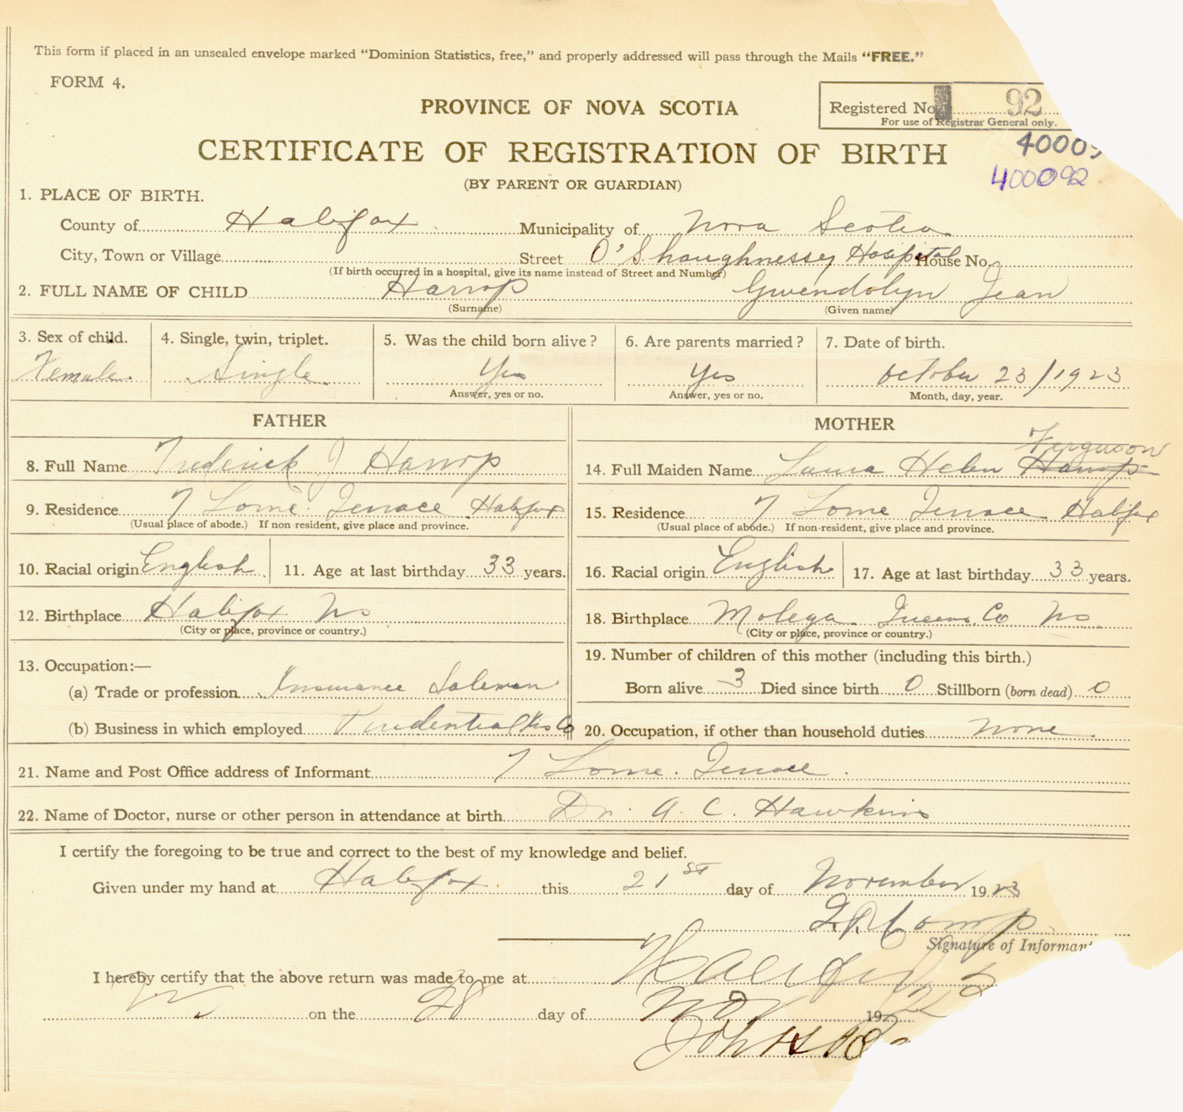 This form if placed in an unsealed envelope marked "Dominion Statistics, free," and properly addressed will pass through the Mails "FREE."
FORM 4.
PROVINCE OF NOVA SCOTIA
Registered No. 92
For use of Registrar General only.
CERTIFICATE OF REGISTRATION OF BIRTH
4000
400092
(BY PARENT OR GUARDIAN)
1. PLACE OF BIRTH.
County of Halifax Municipality of Nova Scotia
City, Town or Village Street O'Shaughnessy Hospital House No.
(If birth occurred in a hospital, give its name instead of Street and Number)
2. FULL NAME OF CHILD Harrop Gwendolyn Jean
(Surname) (Given name)
3. Sex of child. 4. Single, twin, triplet. 5. Was the child born alive? 6. Are parents married? 7. Date of birth.
Female Single Yes Yes October 23/1923
Answer, yes or no. Answer, yes or no. Month, day, year.
FATHER MOTHER
Ferguson
8. Full Name Frederick J Harrop 14. Full Maiden Name Laura Helen Harrop
9. Residence 7 Lorne Terrace Halifax 15. Residence 7 Lorne Terrace Halifax
(Usual place of abode.) If non-resident, give place and province. (Usual place of abode.) If non-resident, give place and province.
10. Racial origin English 11. Age at last birthday 33 years. 16. Racial origin English 17. Age at last birthday 33 years.
12. Birthplace Halifax NS 18. Birthplace Molega Queens Co NS
(City or place, province or country.) (City or place, province or country.)
13. Occupation:— 19. Number of children of this mother (including this birth.)
(a) Trade or profession Insurance Salesman Born alive 3 Died since birth 0 Stillborn (born dead) 0
(b) Business in which employed Prudential Ins Co 20. Occupation, if other than household duties None
21. Name and Post Office address of Informant 7 Lorne Terrace
22. Name of Doctor, nurse or other person in attendance at birth Dr. A. C. Hawkins
I certify the foregoing to be true and correct to the best of my knowledge and belief.
Given under my hand at Halifax this 21st day of November 1923
Signature of Informant
I hereby certify that the above return was made to me at Halifax
on the 28 day of Nov 192
John